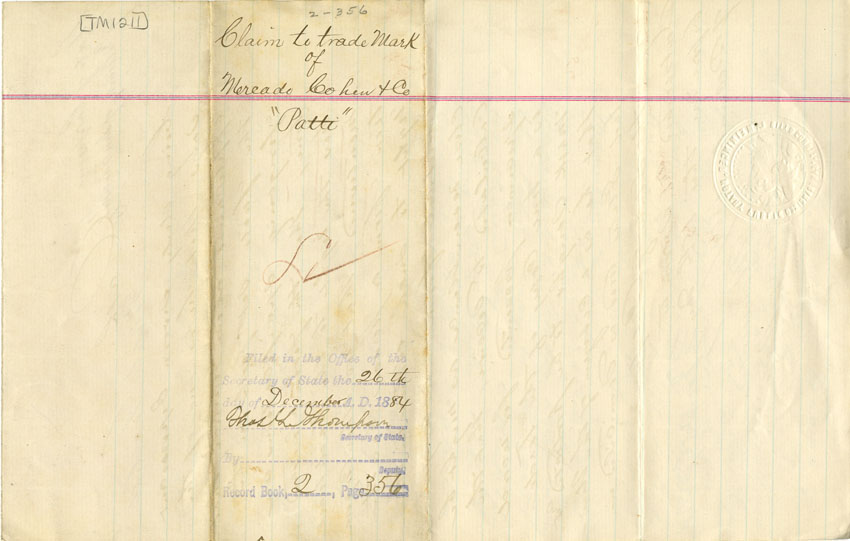 [TM1211]
2-356
Claim to trade Mark
of
Mercado Cohen & Co
"Patti"
Filed in the Office of the
Secretary of State the 26th
day of December A. D. 1884
Thos L. Thompson
Secretary of State.
By
Deputy.
Record Book, 2, Page 356